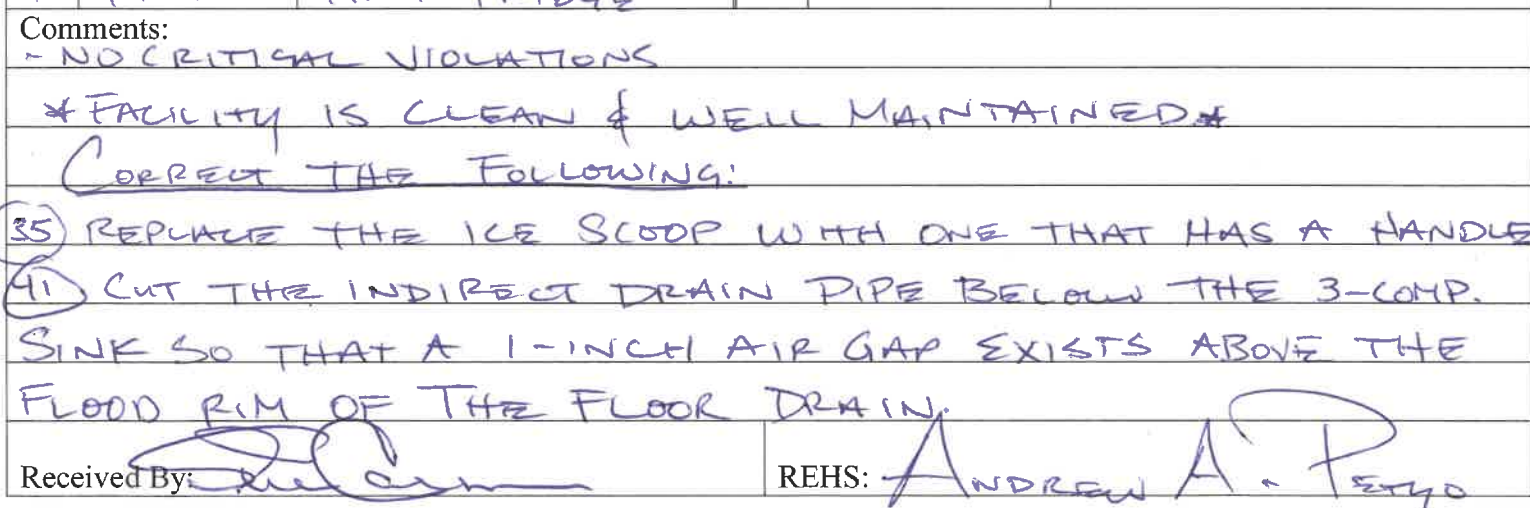 Comments:
- NO CRITICAL VIOLATIONS
* FACILITY IS CLEAN & WELL MAINTAINED *
CORRECT THE FOLLOWING:
35) REPLACE THE ICE SCOOP WITH ONE THAT HAS A HANDLE
41) CUT THE INDIRECT DRAIN PIPE BELOW THE 3-COMP.
SINK SO THAT A 1-INCH AIR GAP EXISTS ABOVE THE
FLOOD RIM OF THE FLOOR DRAIN.
Received By:
REHS: ANDREW A. PETYO